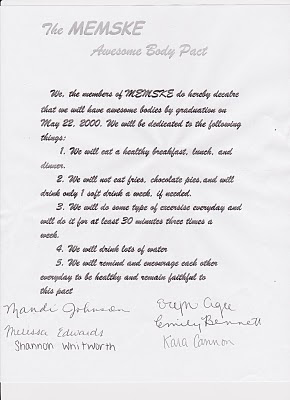 The MEMSKE
Awesome Body Pact
We, the members of MEMSKE do hereby decalre
that we will have awesome bodies by graduation on
May 22, 2000. We will be dedicated to the following
things:
1. We will eat a healthy breakfast, lunch, and
dinner.
2. We will not eat fries, chocolate pies,and will
drink only 1 soft drink a week, if needed.
3. We will do some type of excersise everyday and
will do it for at least 30 minutes three times a
week.
4. We will drink lots of water
5. We will remind and encourage each other
everyday to be healthy and remain faithful to
this pact
Mandi Johnson
Steph
Melessa Edwards
Emily Bennett
Shannon Whitworth
Kara Cannon